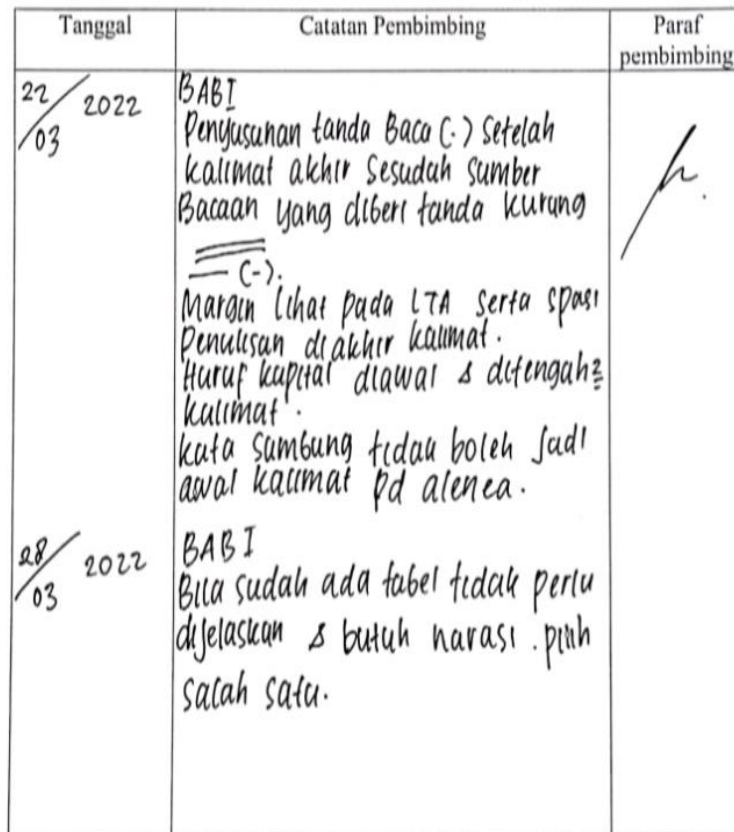 Tanggal Catatan Pembimbing Paraf pembimbing
22/03 2022 BAB I
Penyusunan tanda Baca (.) setelah
kalimat akhir sesudah sumber
Bacaan yang diberi tanda kurung
(-).
Margin lihat pada LTA serta spasi
Penulisan diakhir kalimat.
Huruf kapital diawal & ditengah2
kalimat.
kata sambung tidak boleh jadi
awal kalimat pd alenea.
28/03 2022 BAB I
Bila sudah ada tabel tidak perlu
dijelaskan & butuh narasi. pilih
salah satu.